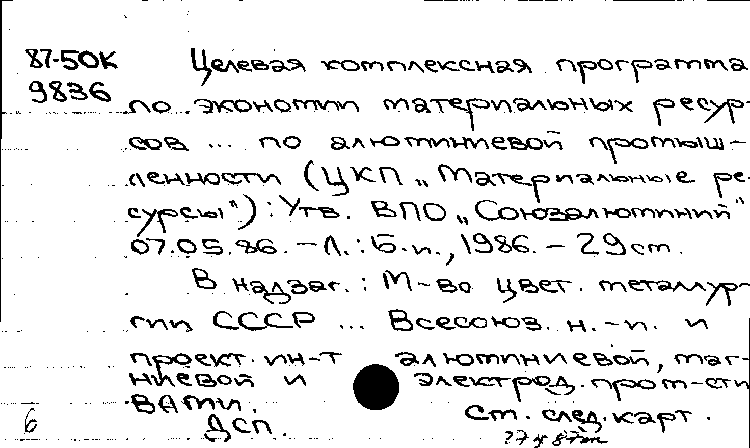 87-50К Целевая комплексная программа
9836 по экономии материальных ресур-
сов ... по алюминиевой промыш-
ленности (ЦКП „Материальные ре-
сурсы"): Утв. ВПО „Союзалюминий"
07.05.86. - Л.: Б.и., 1986. - 29 ст.
В надзаг.: М-во цвет. металлур-
гии СССР ... Всесоюз. н.-и. и
проект. ин-т алюминиевой, маг-
ниевой и электрод. пром-сти
ВАМИ. Ст. след. карт.
6 ДСП.